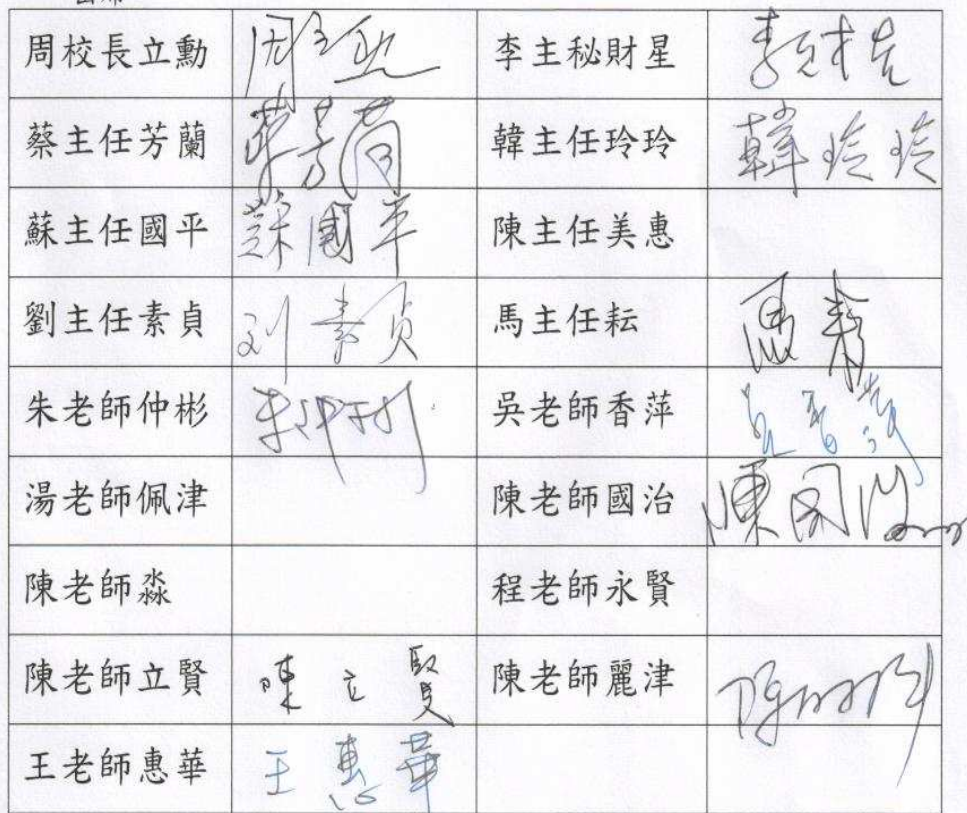 周校長立勳 周立勳 李主秘財星 李財星
蔡主任芳蘭 蔡芳蘭 韓主任玲玲 韓玲玲
蘇主任國平 蘇國平 陳主任美惠
劉主任素貞 刘素贞 馬主任耘 馬耘
朱老師仲彬 朱仲彬 吳老師香萍 吳香萍
湯老師佩津 陳老師國治 陳国治
陳老師淼 程老師永賢
陳老師立賢 陳立賢 陳老師麗津
王老師惠華 王惠華